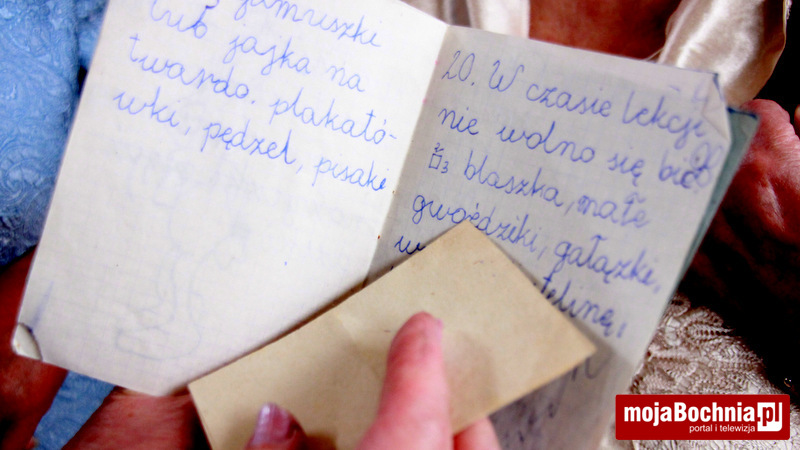 jamuszki
lub jajka na
twardo. plakató-
wki, pędzel, pisaki
20. W czasie lekcji
nie wolno się bić
3 blaszka, małe
gwoździki, gałązki,
telinę,
mojaBochnia.pl
portal i telewizja